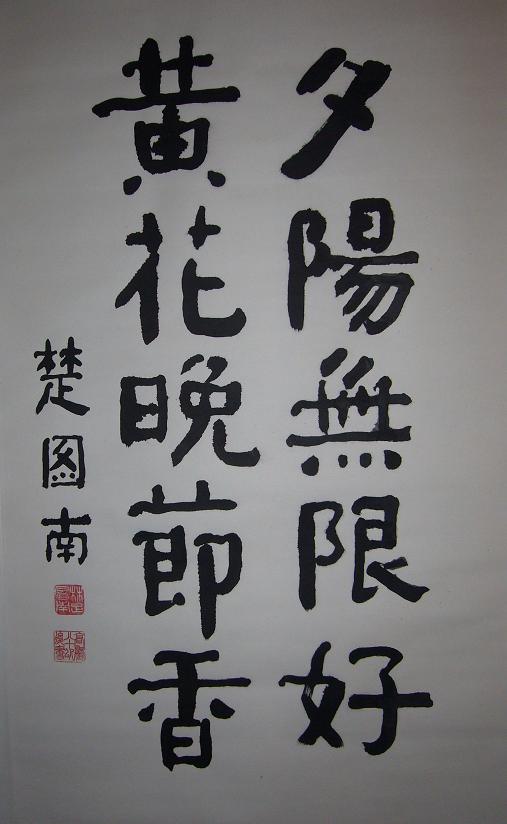 夕陽無限好
黃花晚節香
楚图南